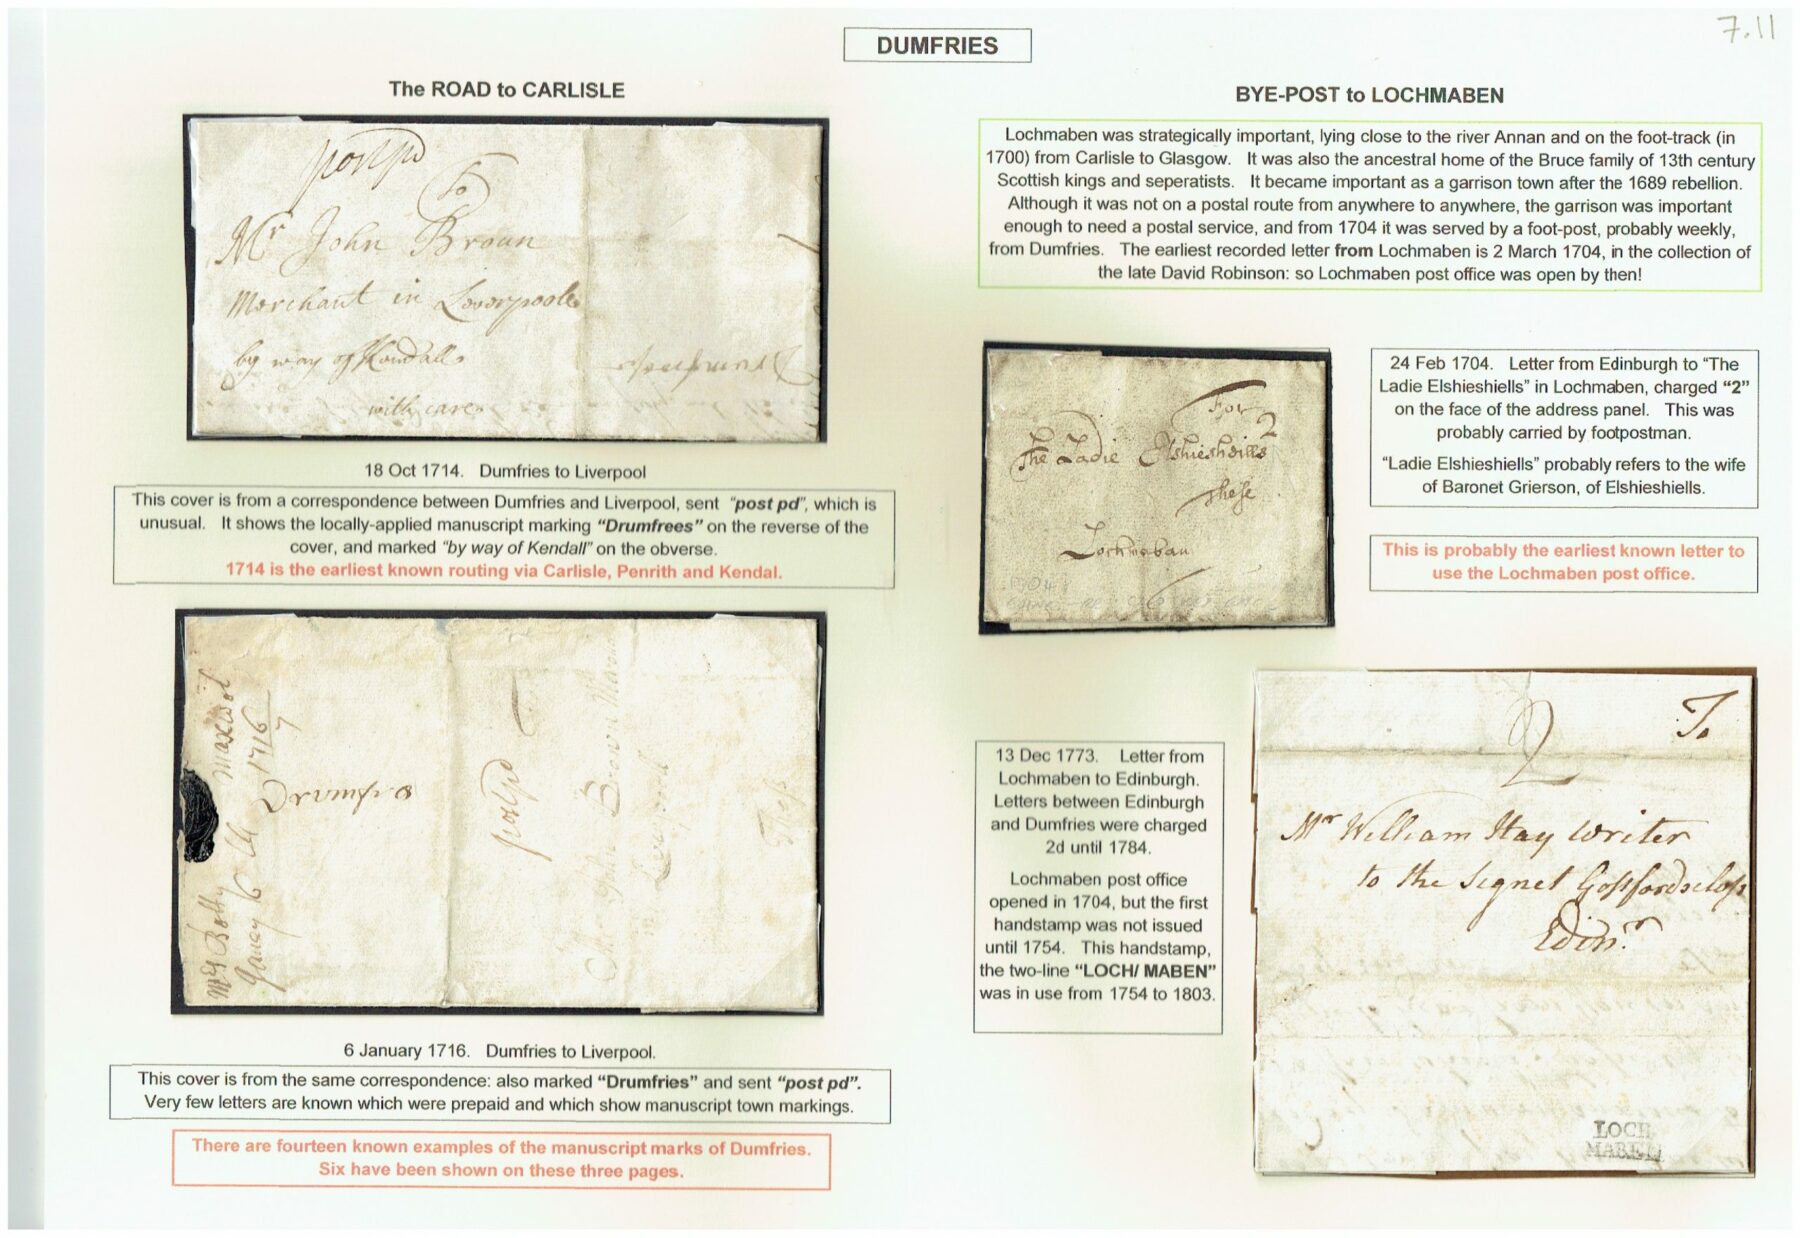 7.11
DUMFRIES
The ROAD to CARLISLE
post pd
To
Mr John Broun
Merchant in Leverpoole
by way of Kendall
with care
18 Oct 1714. Dumfries to Liverpool
This cover is from a correspondence between Dumfries and Liverpool, sent "post pd", which is
unusual. It shows the locally-applied manuscript marking "Drumfrees" on the reverse of the
cover, and marked "by way of Kendall" on the obverse.
1714 is the earliest known routing via Carlisle, Penrith and Kendal.
Mrs Betty Maxwel
1716
7
Drumfrs
post pd
Mr John Brown
6 January 1716. Dumfries to Liverpool.
This cover is from the same correspondence: also marked "Drumfries" and sent "post pd".
Very few letters are known which were prepaid and which show manuscript town markings.
There are fourteen known examples of the manuscript marks of Dumfries.
Six have been shown on these three pages.
BYE-POST to LOCHMABEN
Lochmaben was strategically important, lying close to the river Annan and on the foot-track (in
1700) from Carlisle to Glasgow. It was also the ancestral home of the Bruce family of 13th century
Scottish kings and seperatists. It became important as a garrison town after the 1689 rebellion.
Although it was not on a postal route from anywhere to anywhere, the garrison was important
enough to need a postal service, and from 1704 it was served by a foot-post, probably weekly,
from Dumfries. The earliest recorded letter from Lochmaben is 2 March 1704, in the collection of
the late David Robinson: so Lochmaben post office was open by then!
For
2
The Ladie Elshiesheills
These
Lochmaban
1704
24 Feb 1704. Letter from Edinburgh to "The
Ladie Elshieshiells" in Lochmaben, charged "2"
on the face of the address panel. This was
probably carried by footpostman.
"Ladie Elshieshiells" probably refers to the wife
of Baronet Grierson, of Elshieshiells.
This is probably the earliest known letter to
use the Lochmaben post office.
13 Dec 1773. Letter from
Lochmaben to Edinburgh.
Letters between Edinburgh
and Dumfries were charged
2d until 1784.
Lochmaben post office
opened in 1704, but the first
handstamp was not issued
until 1754. This handstamp,
the two-line "LOCH/ MABEN"
was in use from 1754 to 1803.
2
To
Mr William Hay Writer
to the Signet Gossfordscloss
Edinr
LOCH
MABEN